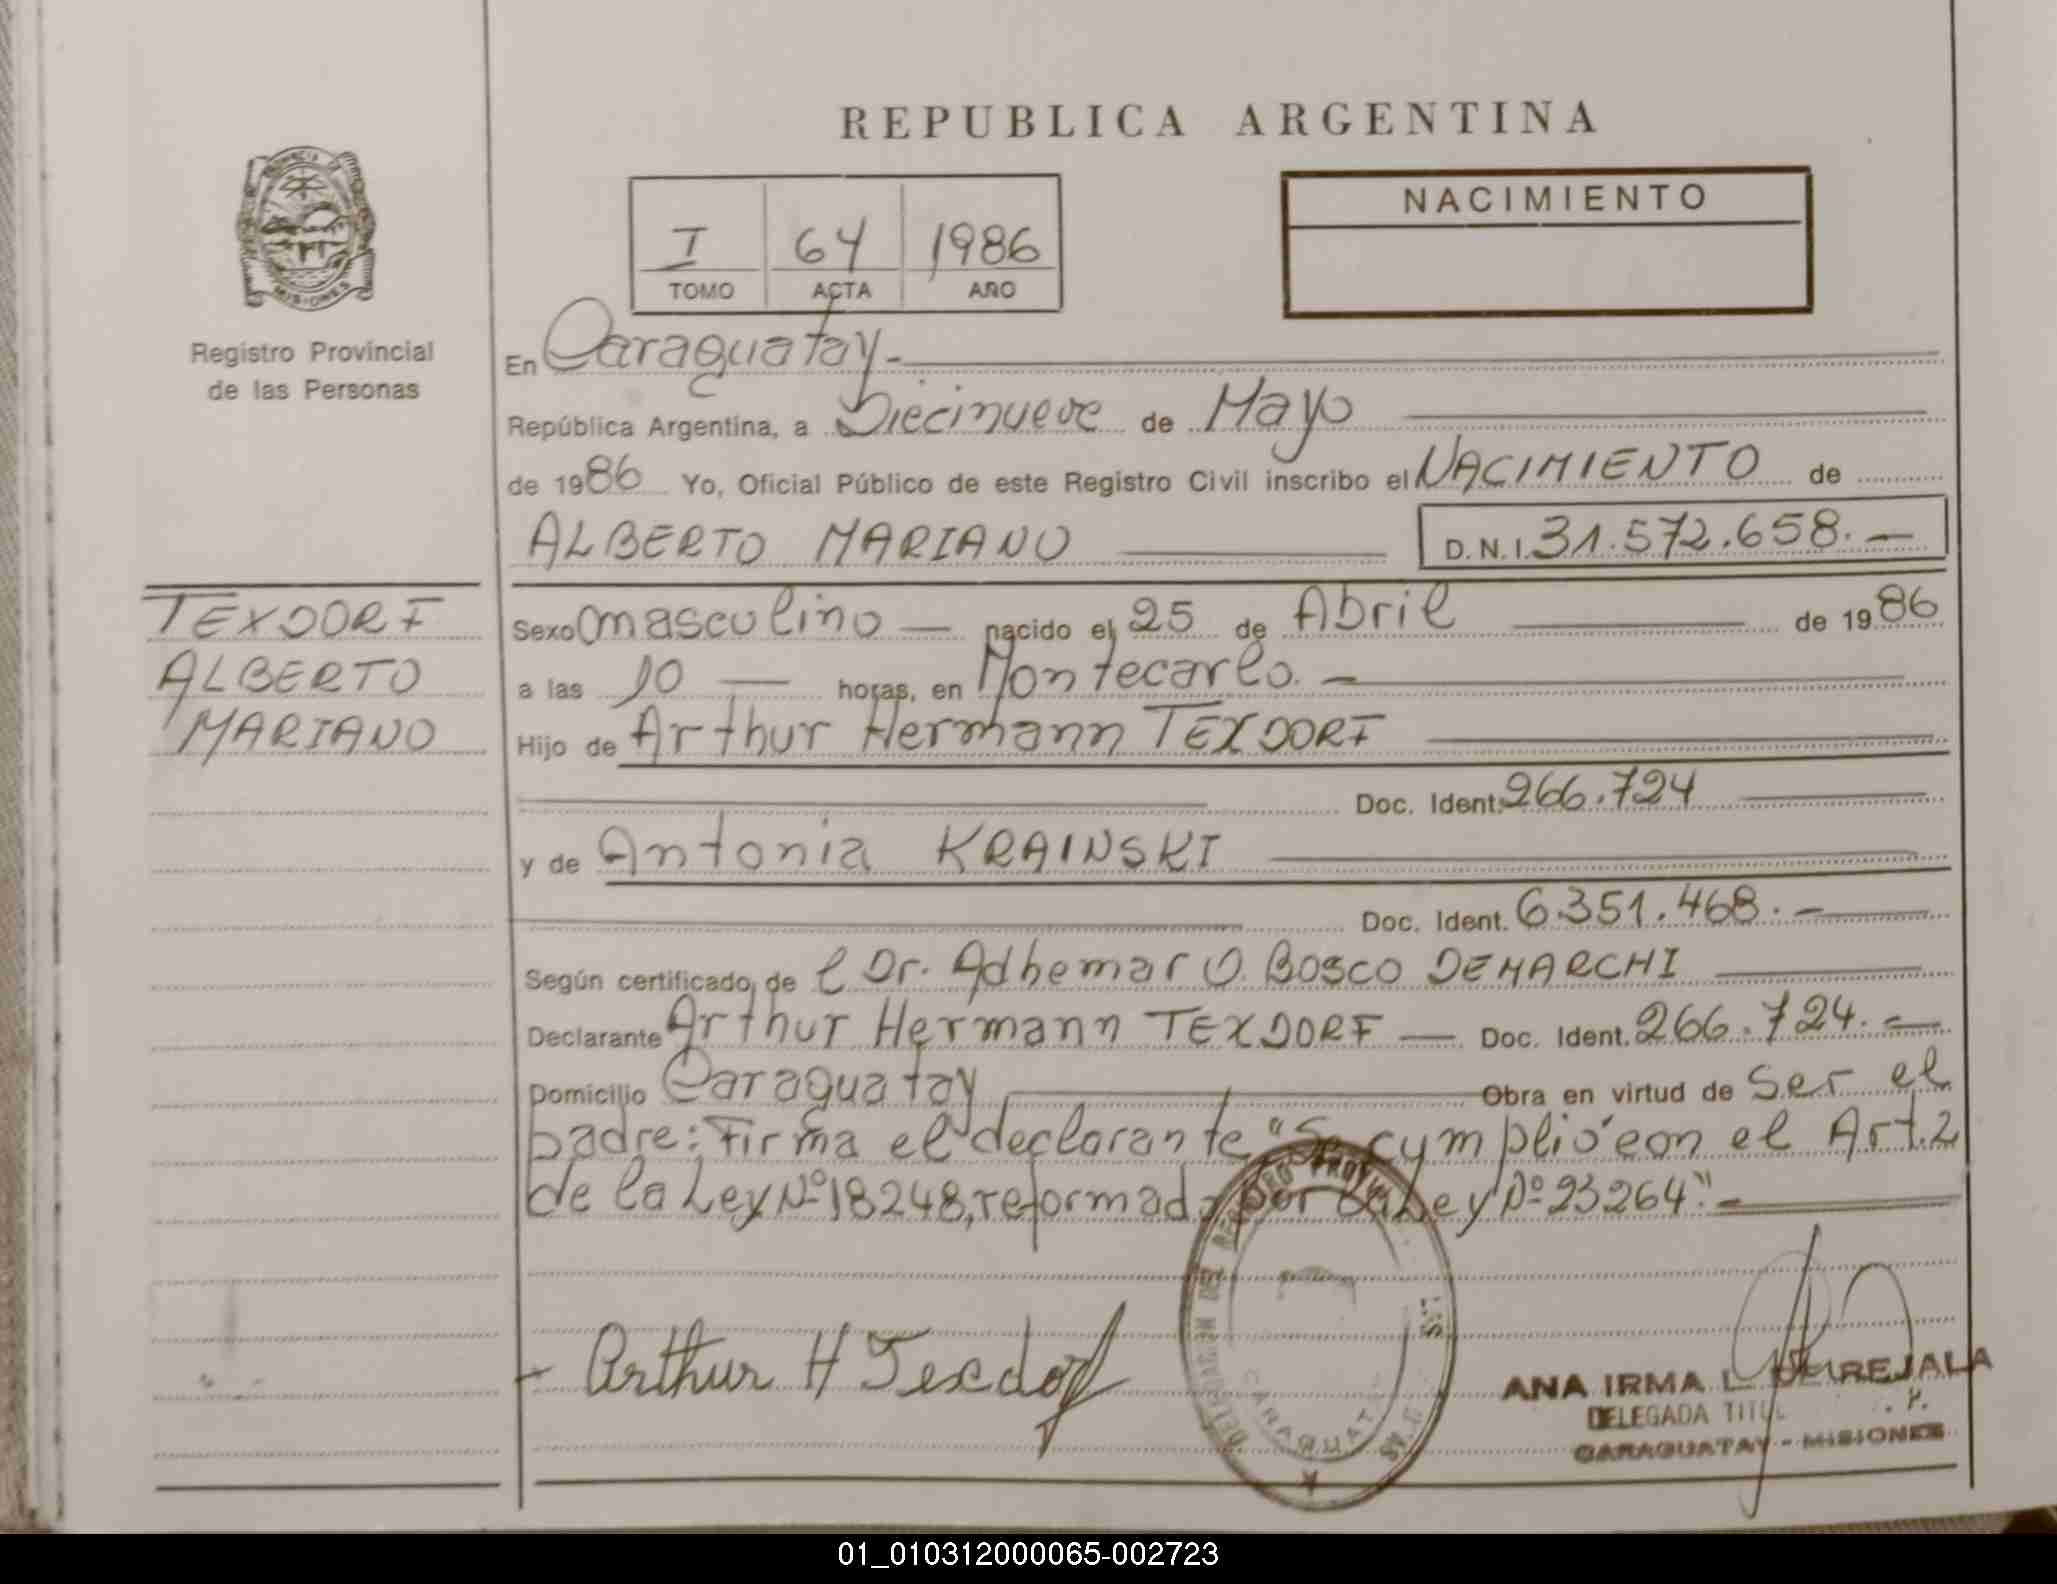 REPUBLICA ARGENTINA
PROVINCIA DE
MISIONES
Registro Provincial
de las Personas
I 64 1986
TOMO ACTA AÑO
NACIMIENTO
En Caraguatay.-
República Argentina, a Diecinueve de Mayo
de 1986 Yo, Oficial Público de este Registro Civil inscribo el NACIMIENTO de
ALBERTO MARIANO D.N.I. 31.572.658.-
TEXDORF
ALBERTO
MARIANO
Sexo masculino — nacido el 25 de Abril de 1986
a las 10 — horas, en Montecarlo.-
Hijo de Arthur Hermann TEXDORF
Doc. Ident. 266.724
y de Antonia KRAINSKI
Doc. Ident. 6.351.468.-
Según certificado de l Dr. Adhemar O. Bosco DEMARCHI
Declarante Arthur Hermann TEXDORF — Doc. Ident. 266.724.-
Domicilio Caraguatay Obra en virtud de Ser el
padre: Firma el declarante "Se cumplió con el Art. 2
de la Ley Nº 18248, reformada por la Ley Nº 23264".-
Arthur H Texdorf
DELEGACION DEL REGISTRO PROV
CARAGUATAY
ANA IRMA L. DE REJALA
DELEGADA
CARAGUATAY - MISIONES
01_010312000065-002723